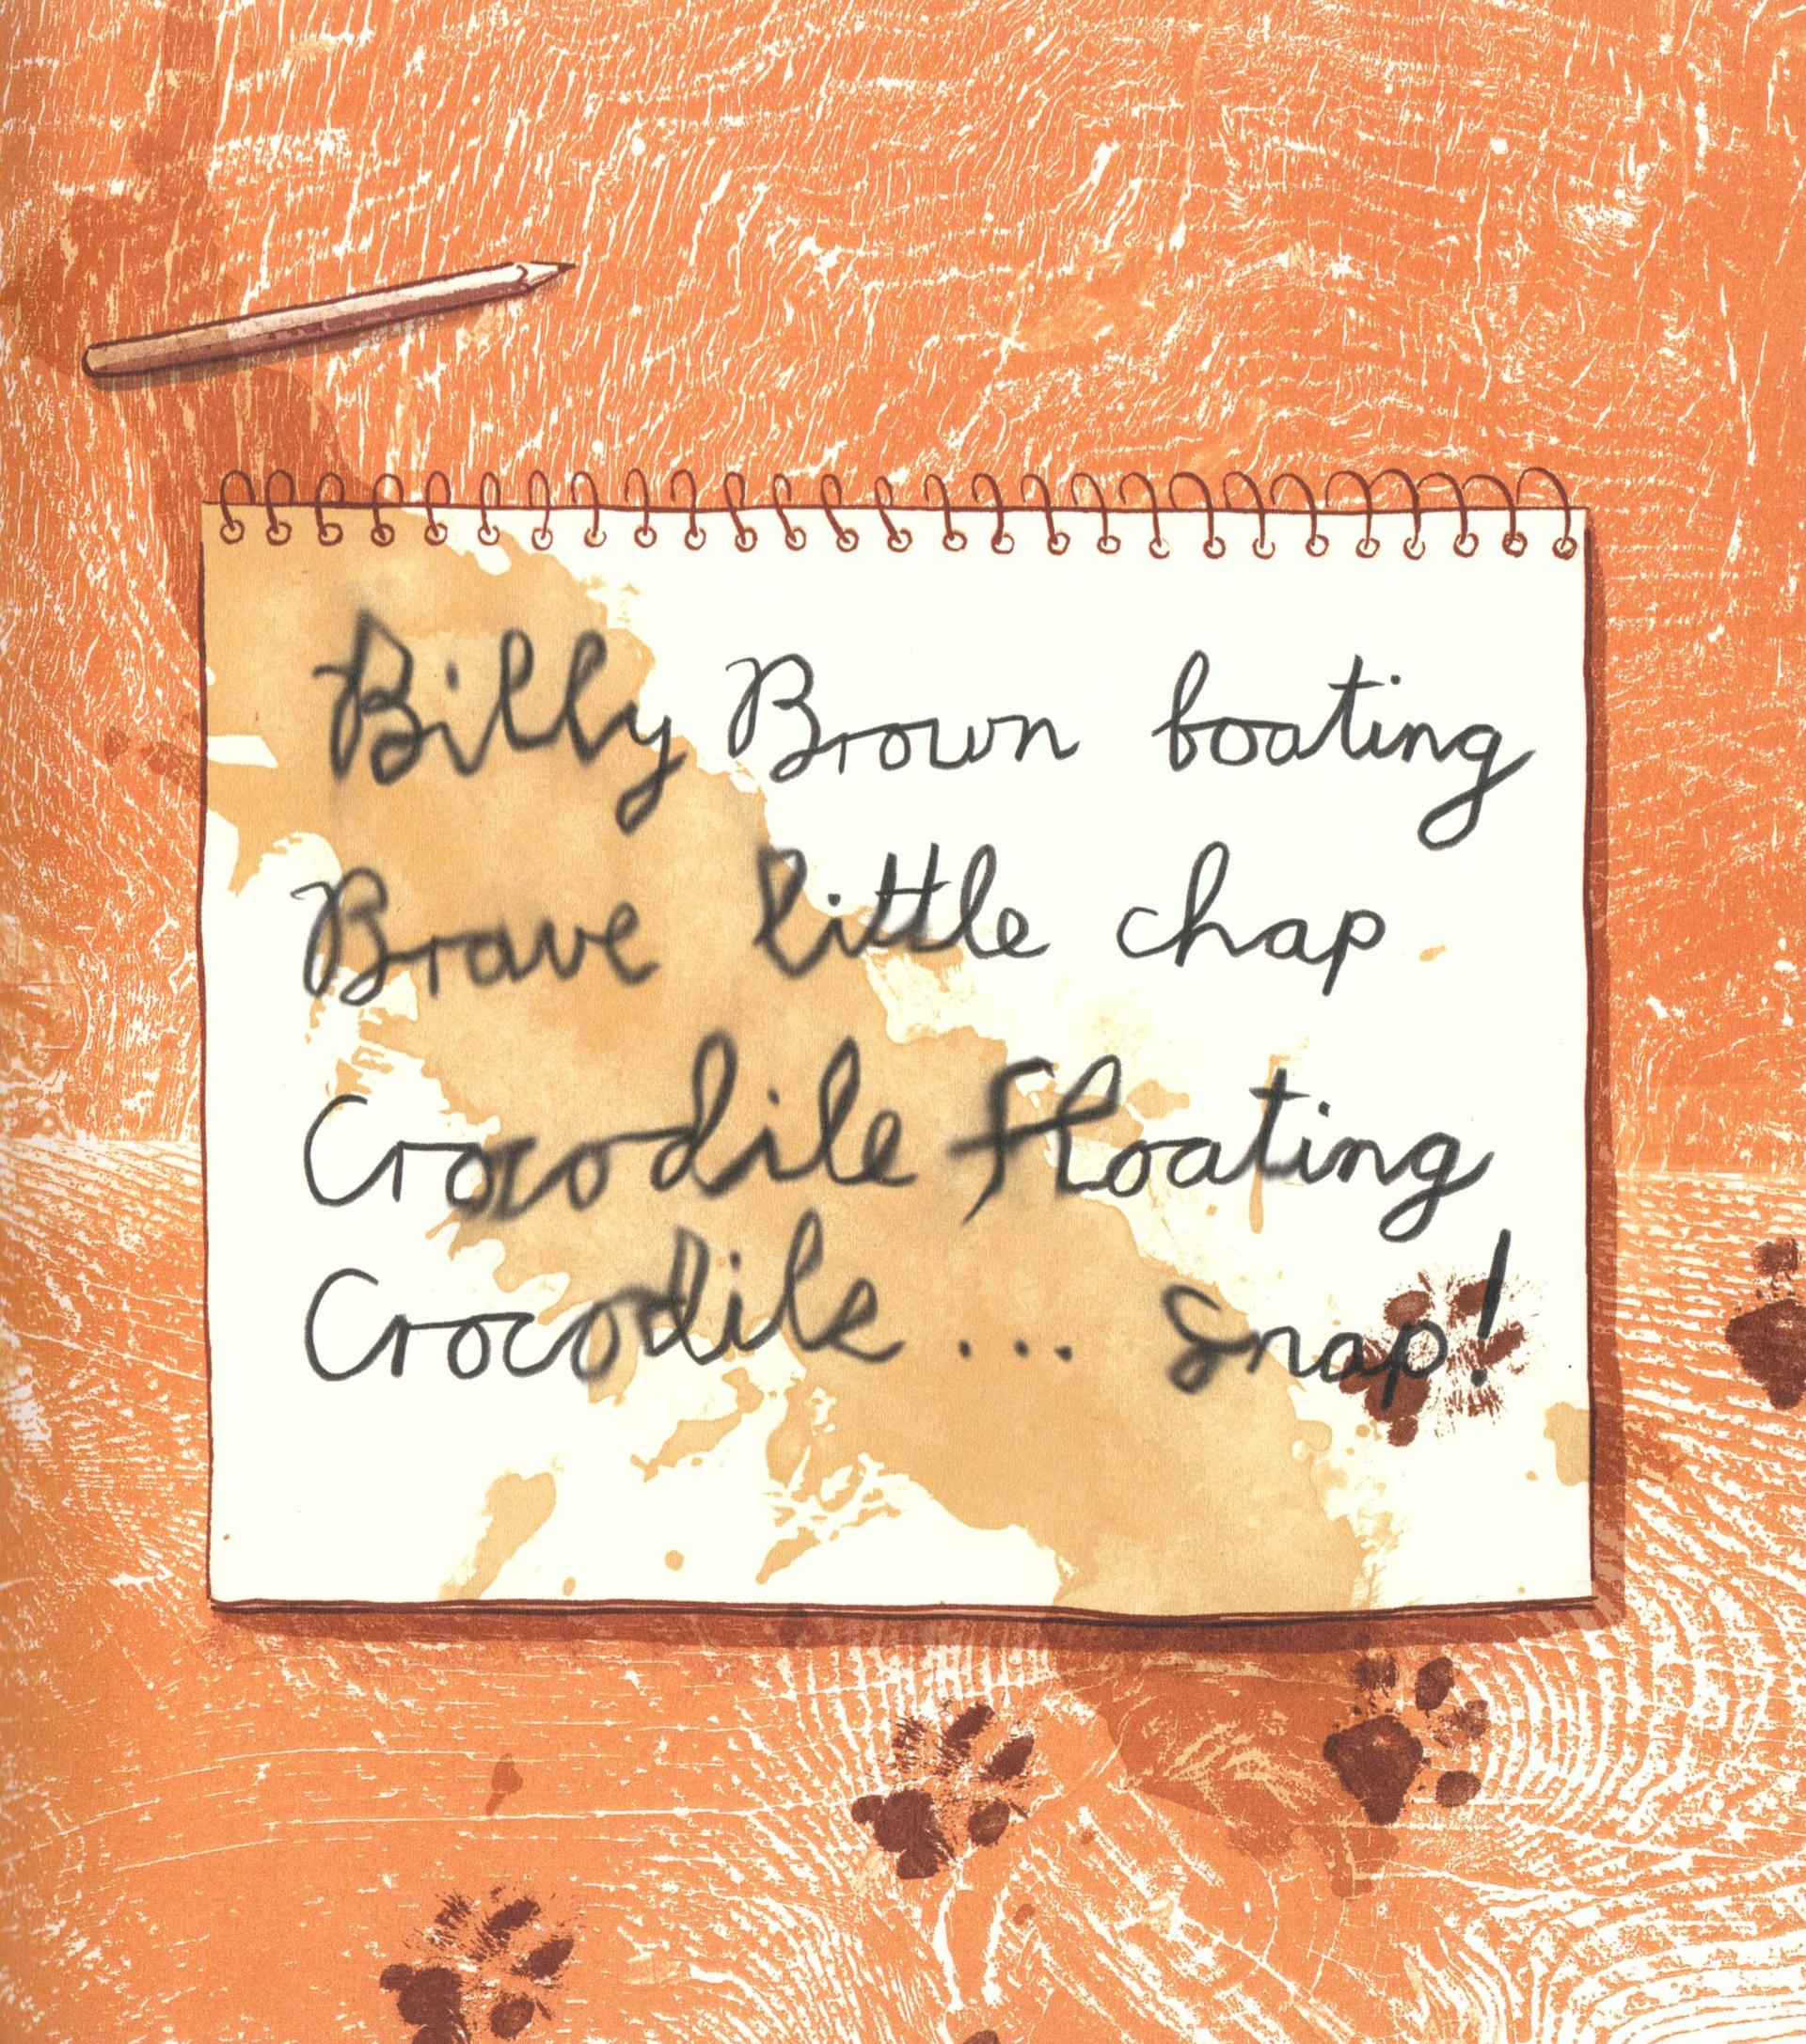 Billy Brown boating
Brave little chap
Crocodile floating
Crocodile ... snap!